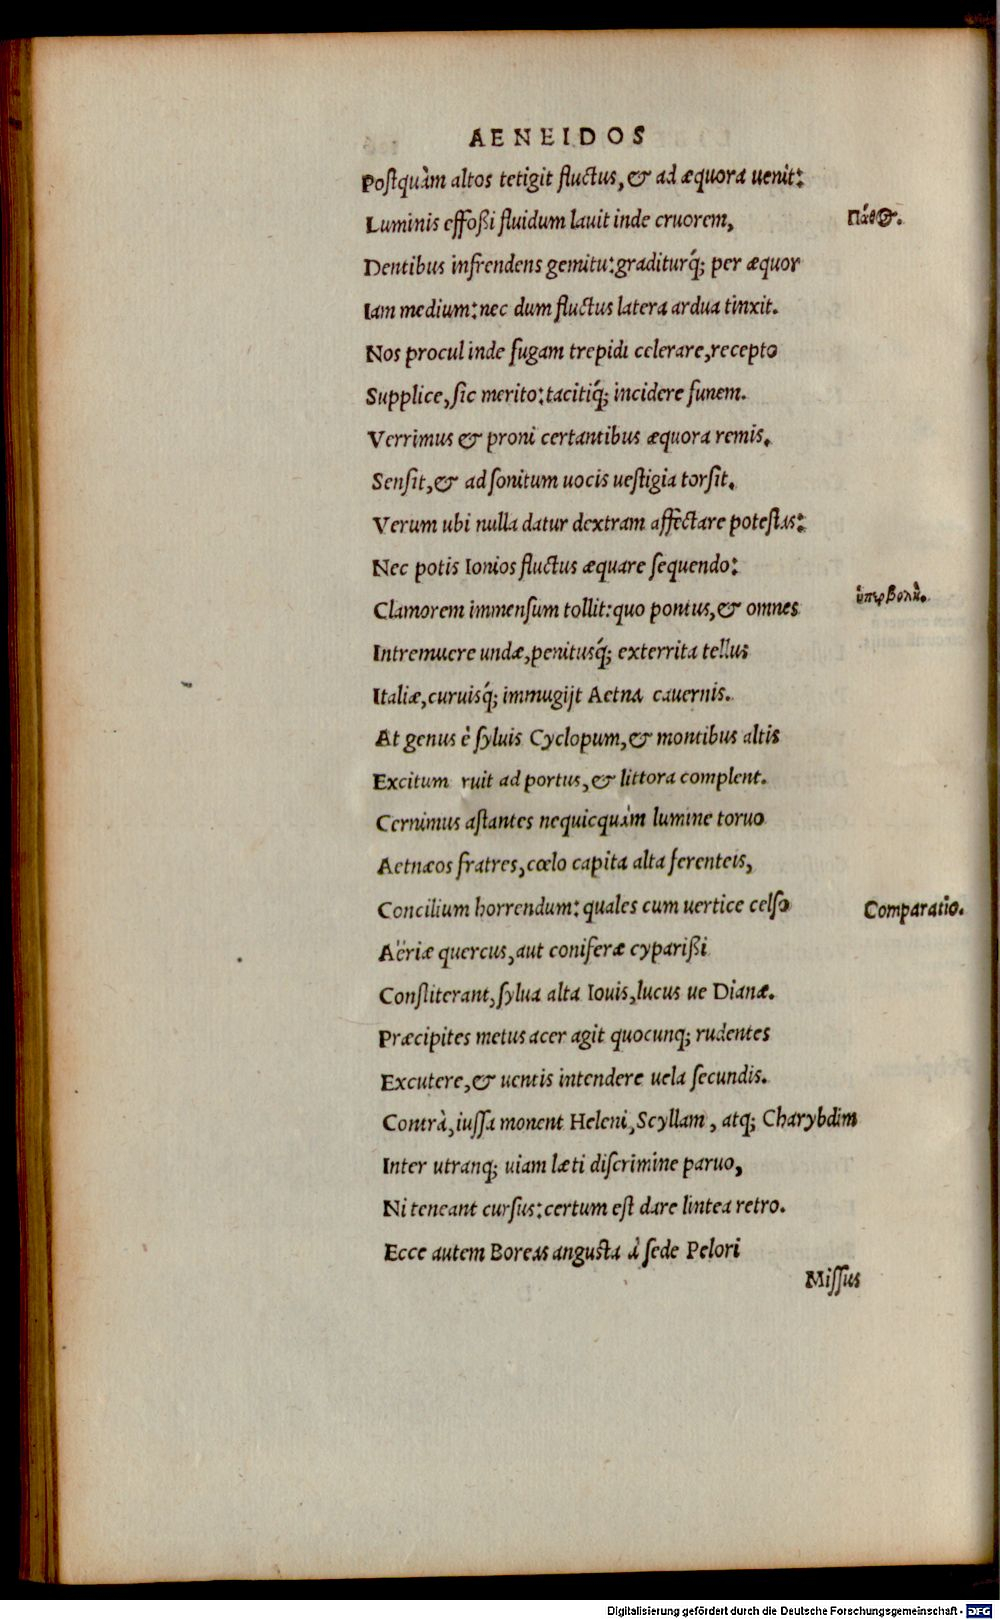 AENEIDOS
Postquàm altos tetigit fluctus, & ad æquora uenit:
Luminis effoßi fluidum lauit inde cruorem,
Πάθος.
Dentibus infrendens gemitu: graditurq́; per æquor
Iam medium: nec dum fluctus latera ardua tinxit.
Nos procul inde fugam trepidi celerare, recepto
Supplice, sic merito: tacitiq́; incidere funem.
Verrimus & proni certantibus æquora remis.
Sensit, & ad sonitum uocis uestigia torsit.
Verum ubi nulla datur dextram affectare potestas:
Nec potis Ionios fluctus æquare sequendo:
Clamorem immensum tollit: quo pontus, & omnes
ὑπερβολὴ.
Intremuere undæ, penitusq́; exterrita tellus
Italiæ, curuisq́; immugijt Aetna cauernis.
At genus è syluis Cyclopum, & montibus altis
Excitum ruit ad portus, & littora complent.
Cernimus astantes nequicquàm lumine toruo
Aetnæos fratres, cœlo capita alta ferenteis,
Concilium horrendum: quales cum uertice celso
Comparatio.
Aëriæ quercus, aut coniferæ cyparißi
Constiterant, sylua alta Iouis, lucus ue Dianæ.
Præcipites metus acer agit quocunq; rudentes
Excutere, & uentis intendere uela secundis.
Contrà, iussa monent Heleni, Scyllam, atq; Charybdim
Inter utranq; uiam læti discrimine paruo,
Ni teneant cursus: certum est dare lintea retro.
Ecce autem Boreas angusta à sede Pelori
Missus
Digitalisierung gefördert durch die Deutsche Forschungsgemeinschaft - DFG